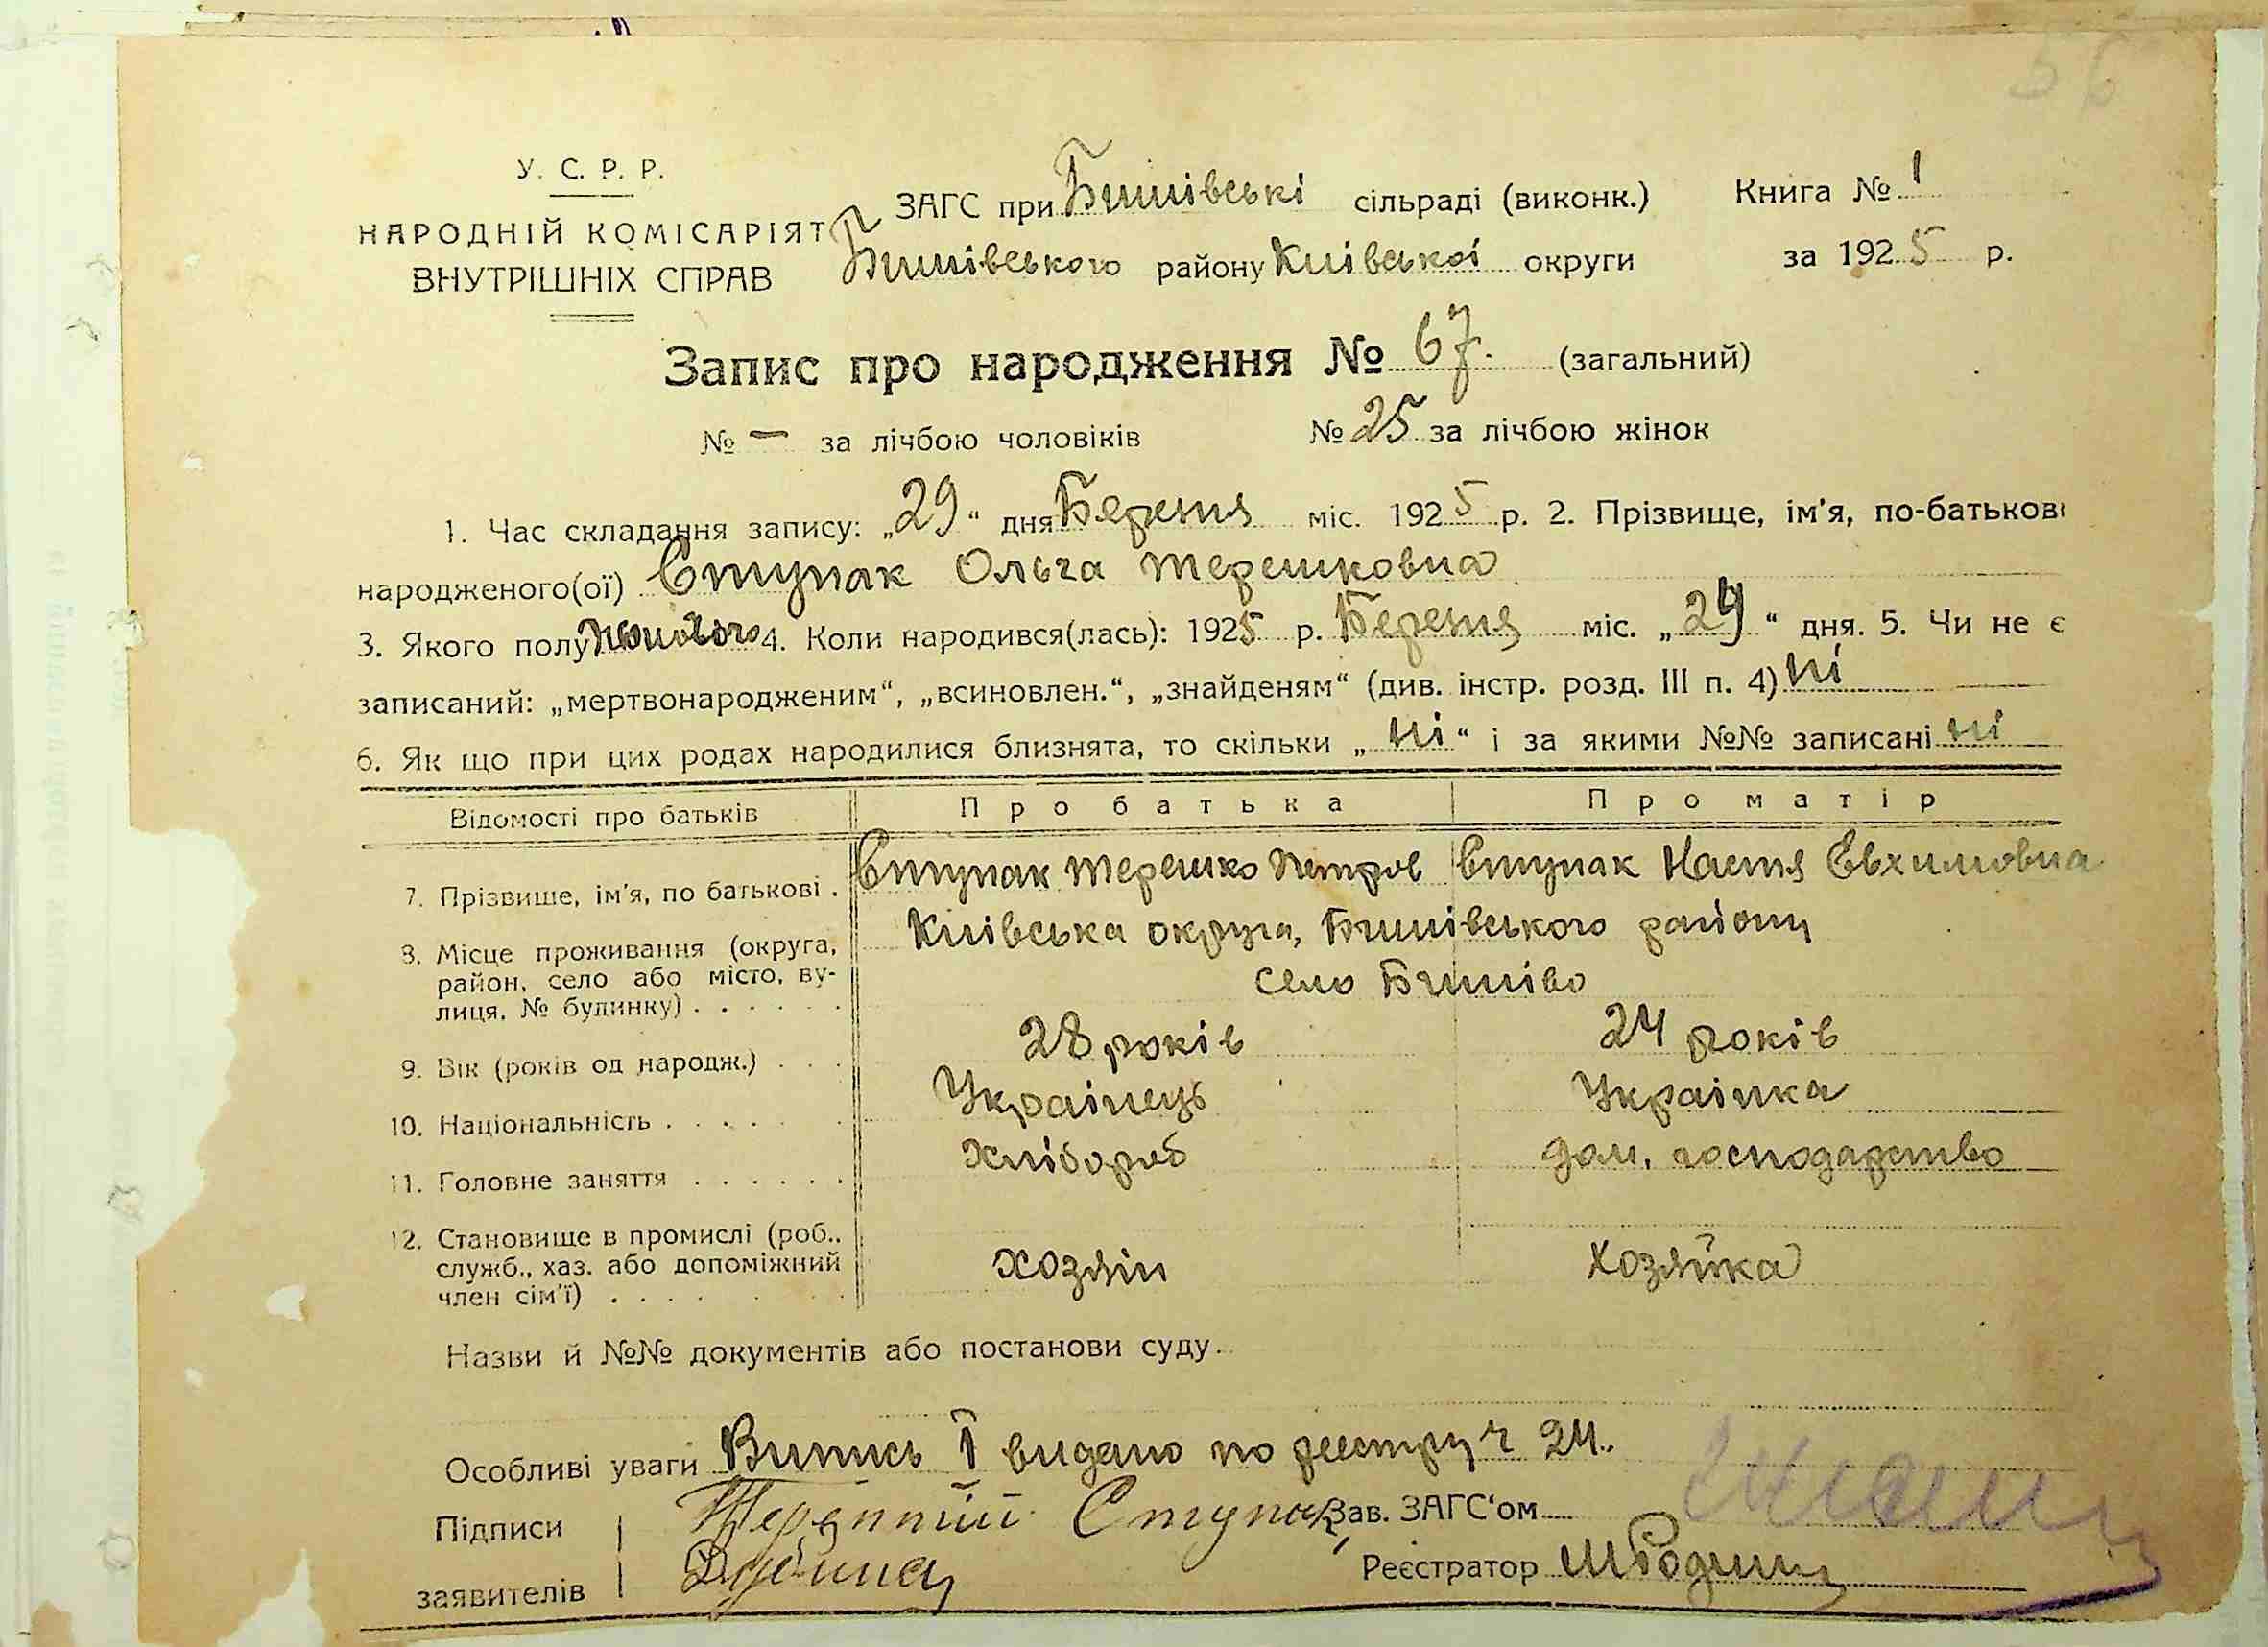 56
У. С. Р. Р.
НАРОДНІЙ КОМІСАРІЯТ
ВНУТРІШНІХ СПРАВ
ЗАГС при Бишівські сільраді (виконк.)
Бишівського району Київськоі округи
Книга № 1
за 1925 р.
Запис про народження № 67. (загальний)
№ — за лічбою чоловіків № 25 за лічбою жінок
1. Час складання запису: „29“ дня Березня міс. 1925 р. 2. Прізвище, ім'я, по-батькові
народженого(ої) Ступак Ольга Терешковна
3. Якого полу жіночого 4. Коли народився(лась): 1925 р. Березня міс. „24“ дня. 5. Чи не є
записаний: „мертвонародженим“, „всиновлен.“, „знайденям“ (див. інстр. розд. III п. 4) ні
6. Як що при цих родах народилися близнята, то скільки „ні“ і за якими №№ записані ні
Відомості про батьків Про батька Про матір
7. Прізвище, ім'я, по батькові . Ступак Терешко Петров Ступак Настя Евхимовна
8. Місце проживання (округа, Київська округа, Бишівського району
район, село або місто, ву- село Бишіво
лиця, № будинку) . . . . . .
9. Вік (років од народж.) . . . 28 років 24 років
10. Національність . . . . . Украінець Украінка
11. Головне заняття . . . . . . Хлібороб дом. господарство
12. Становище в промислі (роб.,
служб., хаз. або допоміжний хозяін хозяйка
член сім'ї) . . . .
Назви й №№ документів або постанови суду.
Особливі уваги Випись І видано по реестру ч 24.
Підписи Ступак Зав. ЗАГС'ом
заявителів Реєстратор